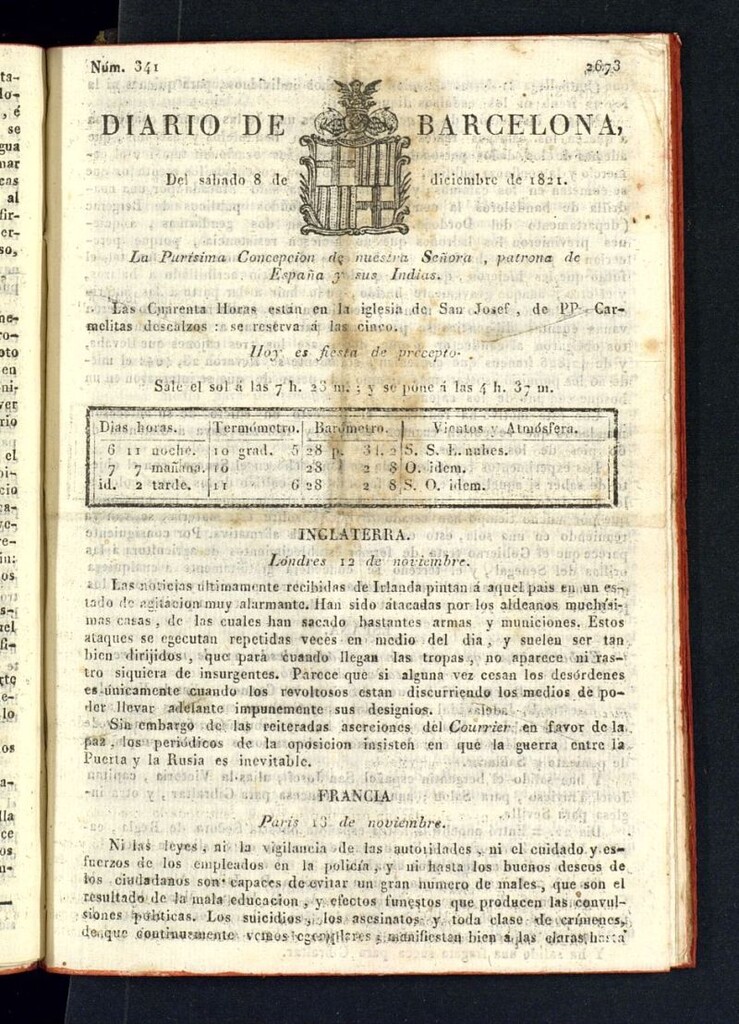 Núm. 341 2673
DIARIO DE BARCELONA,
Del sabado 8 de diciembre de 1821.
La Purísima Concepcion de nuestra Señora, patrona de
España y sus Indias.
Las Cuarenta Horas estan en la iglesia de San Josef, de PP. Car-
melitas descalzos: se reserva á las cinco.
Hoy es fiesta de precepto.
Sale el sol á las 7 h. 23 m.; y se pone á las 4 h. 37 m.
Dias horas. Termómetro. Barómetro. Vientos y Atmósfera.
6 11 noche. 10 grad. 5 28 p. 3 l. 2 S. S. E. nubes.
7 7 mañana. 10 28 2 8 O. idem.
id. 2 tarde. 11 6 28 2 8 S. O. idem.
INGLATERRA.
Londres 12 de noviembre.
Las noticias últimamente recibidas de Irlanda pintan á aquel pais en un es-
tado de agitacion muy alarmante. Han sido atacadas por los aldeanos muchísi-
mas casas, de las cuales han sacado bastantes armas y municiones. Estos
ataques se egecutan repetidas veces en medio del dia, y suelen ser tan
bien dirijidos, que para cuando llegan las tropas, no aparece ni ras-
tro siquiera de insurgentes. Parece que si alguna vez cesan los desórdenes
es únicamente cuando los revoltosos estan discurriendo los medios de po-
der llevar adelante impunemente sus designios.
Sin embargo de las reiteradas aserciones del Courrier en favor de la
paz, los periódicos de la oposicion insisten en que la guerra entre la
Puerta y la Rusia es inevitable.
FRANCIA
Paris 13 de noviembre.
Ni las leyes, ni la vigilancia de las autoridades, ni el cuidado y es-
fuerzos de los empleados en la policía, y ni hasta los buenos deseos de
los ciudadanos son capaces de evitar un gran número de males, que son el
resultado de la mala educacion, y efectos funestos que producen las convul-
siones políticas. Los suicidios, los asesinatos y toda clase de crímenes,
de que continuamente vemos egemplares, manifiestan bien á las claras hasta